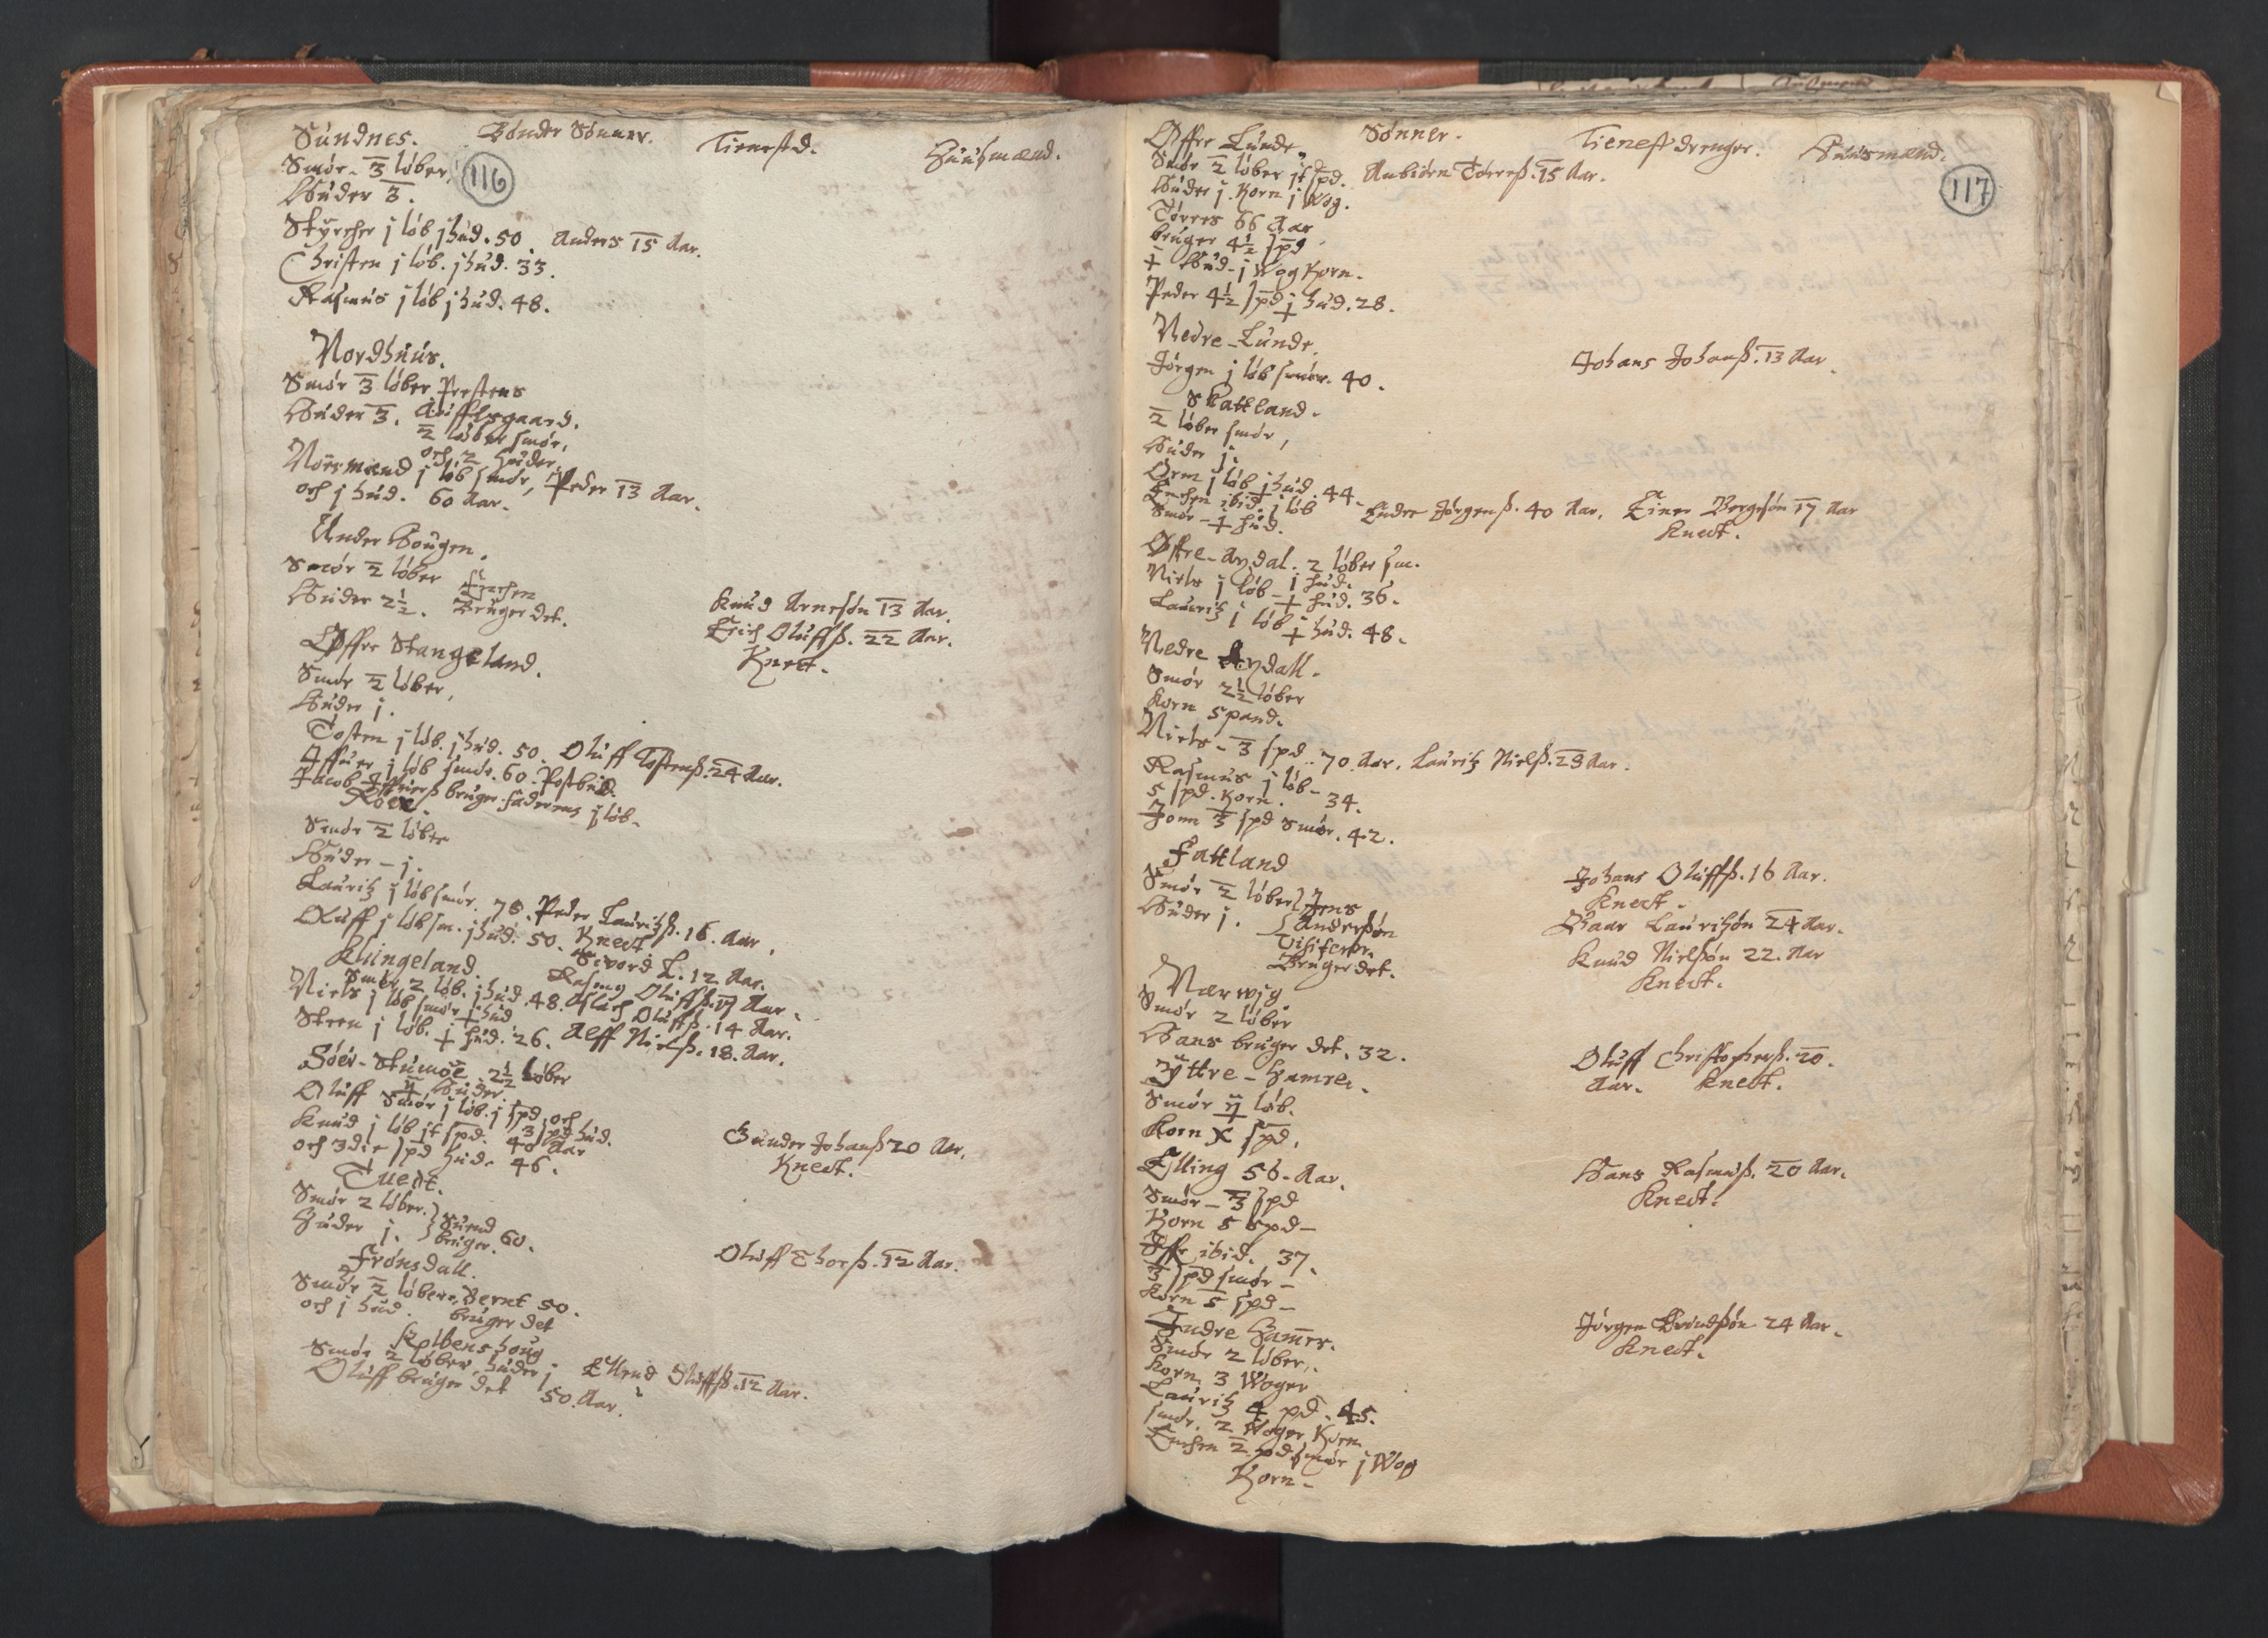 Sundnes. Bønder Sønner. Tieneste d. Huusmænd.
Smør - 3 løber,
116
Huder 3.
Styrcher j løb j hud. 50. Anders 15 Aar.
Christen j løb. j hud. 33.
Rasmus j løb j hud. 48.
Nordhuus.
Smør 3 løber Prestens
Huder 3.
2 løber smør,
och 2 huder.
j løb smør, Peder 13 Aar.
och j hud. 60 Aar.
Under Hougen.
Smør 2 løber Erichen
Huder 2½. Bruger det.
Knud Arnesøn 13 Aar.
Erich Oluffß. 22 Aar.
Knect.
Øffre Stangeland.
Smør 2 løber,
Huder j.
Tosten j løb. j hud. 50. Oluff Tostenß. 24 Aar.
Iffuer j løb smør. 60. Postbud.
Jacob Iffuerß bruger faderens j løb.
Røee.
Smør 2 løber
Huder - j.
Lauritz j løb smør. 70. Peder Lauritzß. 16. Aar.
Knect
Oluff j løb sm. j hud. 50. Sivord L. 12 Aar.
Klingeland. Rasmus Oluffß. 17 Aar.
Smør 2 løb. j hud. Aslach Oluffß. 14 Aar.
Niels j løb smør ɉ hud 48. Alff Nielß. 18. Aar.
Steen j løb. ɉ hud. 26.
Søer-Stumoe. 2½ løber
Huder
Oluff Smør j løb. j spd. och
3 spd hud.
Knud j løb jt spd. 40 Aar
och 3die spd hud. 46.
Gunder Johanß 20 Aar.
Knect.
Tuedt.
Smør 2 løber. Suend
Huder j. bruger. 60.
Frønsdall. Oluff Thorß. 12 Aar.
Smør 2 løber, Bernt 50.
och j hud. bruger det
Kolbenshoug
Smør 2 løber, huder j Ellend Oluffß. 12 Aar.
Oluff bruger det 50. Aar.
Øffre Lunde, Sønner. Tieneste drenger. Huusmænd.
117
Smør 2 løber jt spd. Anbiørn Tørresß. 15 Aar.
Huder j. Korn j Wog.
Tørres 66 Aar
bruger 4½ spd.
ɉ Hud - j Wog Korn.
Peder 4½ spd ɉ hud. 28.
Nedre-Lunde.
Jørgen j løb smør. 40. Johans Johanß. 13 Aar.
Skattland.
2 løber smør,
Huder j.
Orm j løb ɉ hud. 44.
Erichen ibid. j løb Endre Jørgenß. 40 Aar. Einer Borgesøn 17 Aar
Smør - ɉ hud. Knect.
Øffre-Aydal. 2 løber sm.
j hud.
Niels j løb - ɉ hud. 36.
Lauritz j løb ɉ hud. 48.
Nedre Aydall.
Smør 2½ løber
Korn 5 pand.
Niels - 3 spd. 70 Aar. Lauritz Nielß. 23 Aar.
Rasmus j løb -
5 spd. Korn. 34.
Jonn 3 spd Smør. 42.
Fattland
Smør 2 løber Jens
Huder j. Anderßøn
Visiterer.
Bruger det.
Johans Oluffß. 16 Aar.
Knect.
Baar Lauritzøn 24 Aar.
Knud Nielßøn 22. Aar
Knect.
Nærwig.
Smør 2 løber
Hans bruger det. 32.
Yttre-Hamre. Oluff Christopherß. 20.
Aar. Knect.
Smør løb.
Korn X spd.
Elling 56. Aar. Hans Rasmusß. 20 Aar.
Smør - 3 spd Knect.
Korn 5 spd -
Iffr ibid. 37.
3 spd smør -
Korn 5 spd -
Indre Hamre. Jørgen Brendßøn 24 Aar.
Knect.
Smør 2 løber,
Korn. 3 Woger
Lauritz 4 pd. 45.
smør. 2 Woger Korn
Erichen 2 pd smør j Wog
Korn -